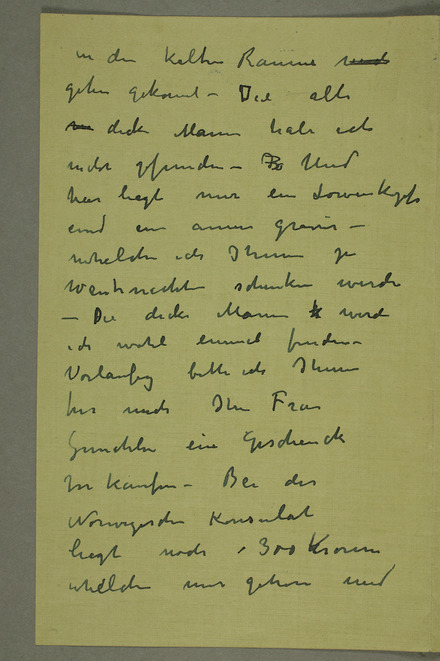 in den kalten Raume
gehen gekonnt – Die alte
dicke Mann habe ich
nicht gefunden – Und
hier liegt nur ein Lowenkopf
und ein armer
whelche ich Ihnen zu
Weihnachten schenken werde
– Die dicke Mann werde
ich wohl einmal finden –
Vorlaufig bitte ich Ihnen
fur mich Ihre Frau
eine Geschenck
zu kaufen – Bei der
Norwegische Konsulat
liegt noch 300 Kronen
whelche mir gehore und